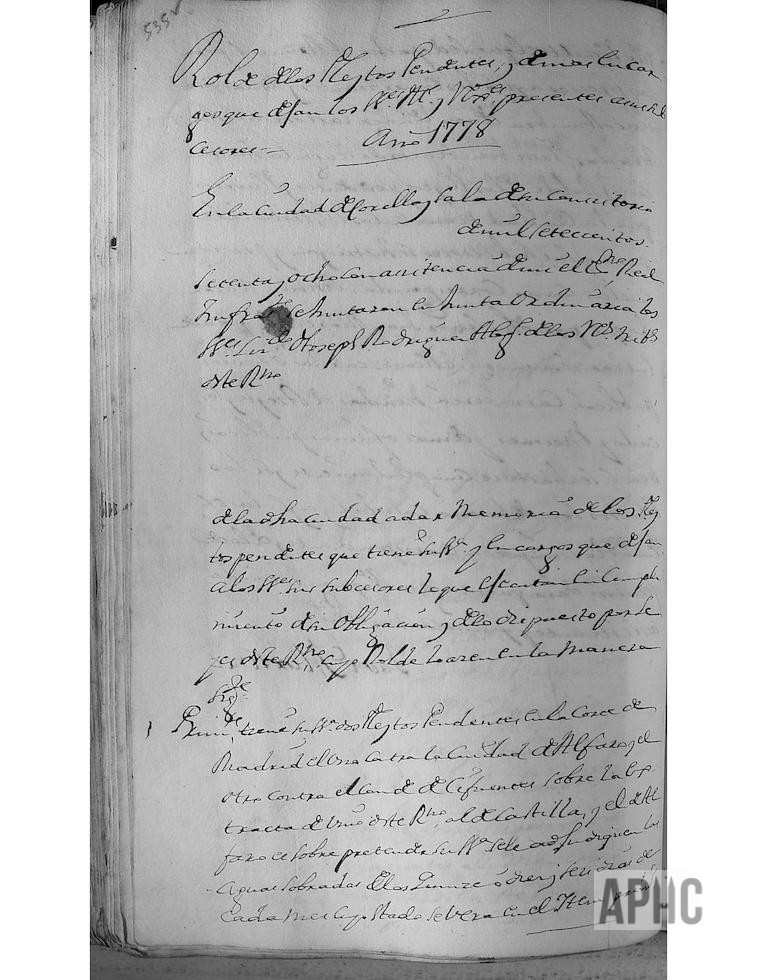 535v
Rol de los Pleytos Pendentes, y demas encar
gos que dejan los SSes Alc. y Vres presentes a sus sub
cesores =
Año 1778
En la Ciudad de Corella y Sala de su Consistorio
de mil setecientos
setenta y ocho con asistencia de mi el Esno Real
Infrato se Juntaron en Junta Ordinaria los
SSes Lizdo Dn Joseph Rodriguez Abog. de los Rs. Trib.s
de este Rno
de la dha ciudad a dar Memoria de los Pley
tos pendites que tiene su Sa. y encargos que dejan
a los SSes sus subcesores lo que ejecutan en Cumpli
miento de su Obligacion y de lo dispuesto por Le
yes de este Rno cuyo Rol de hacen en la Manera
Sigte
1 Primte tiene su Sa. dos Pleytos Pendentes en la Corte de
Madrid el uno contra la Ciudad de Alfaro y el
otro contra el Conde de Cifuentes sobre la Ex
tracta de vino de este Rno al de Castilla, y el de Al
faro es sobre pretender su Sa. se le adjudiquen las
aguas sobradas de los Quince o diez y seis dias de
cada mes cuyo estado se vera en el Item
APHC